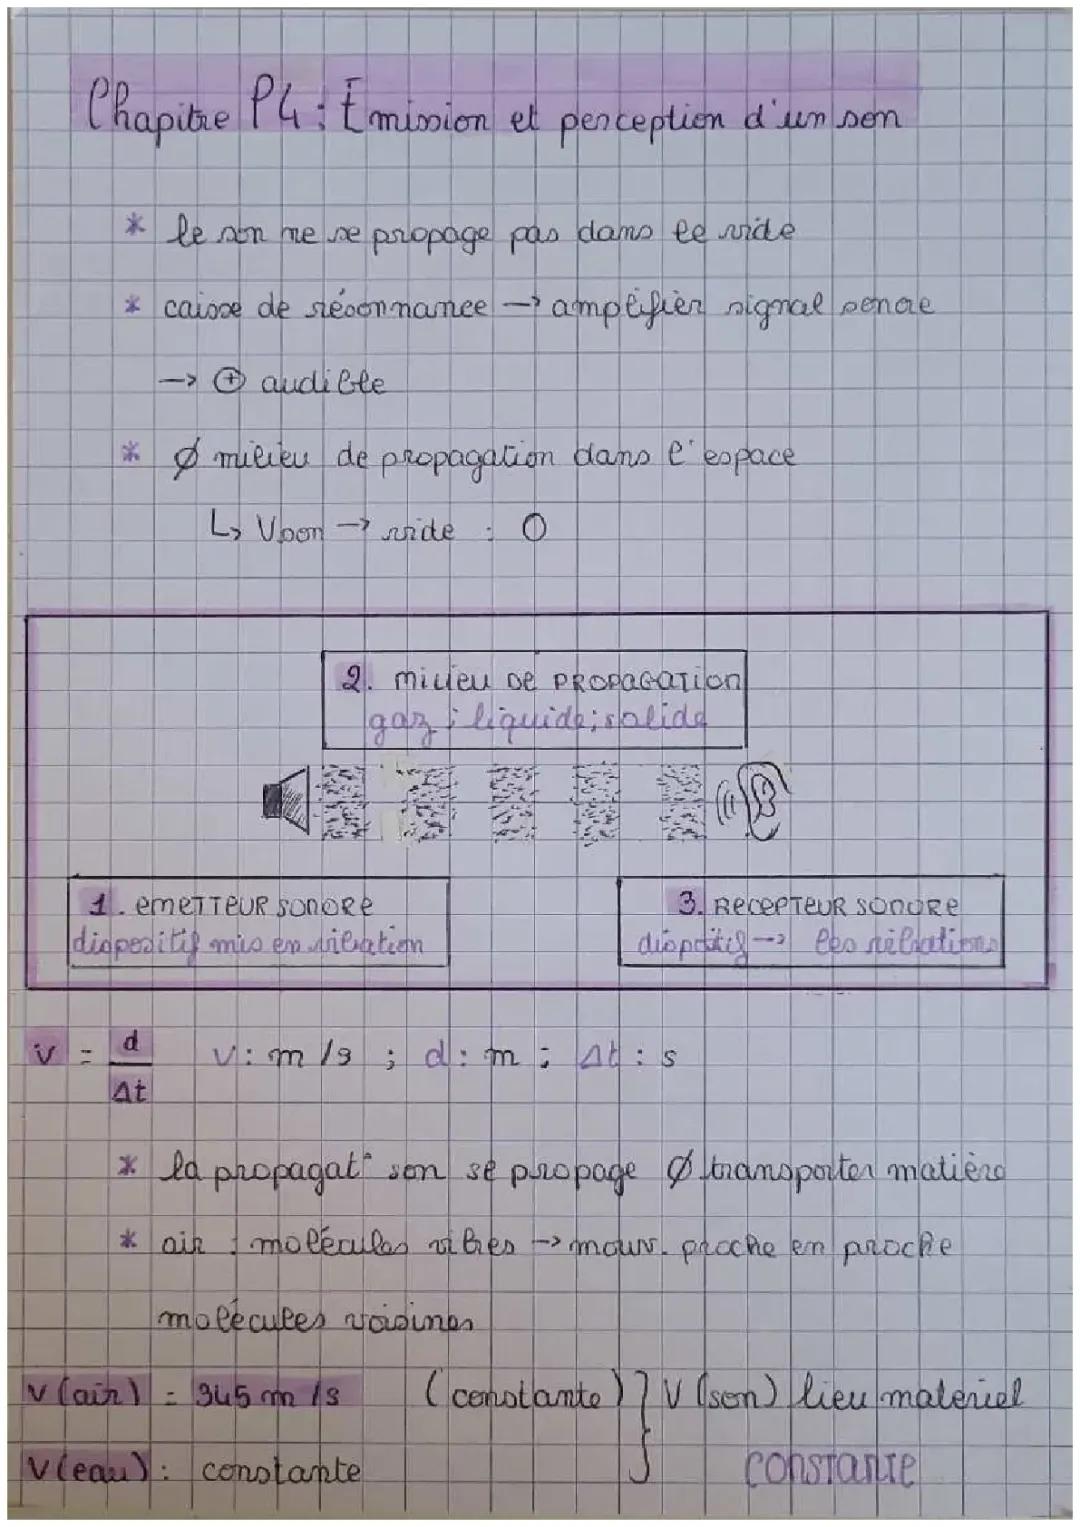 Chapitre P4 : Émission et perception d'un son
* le son ne se propage pas dans le vide
* caisse de résonnance → amplifier signal sonore
→ ⊕ audible
* Ø milieu de propagation dans l'espace
↳ Vson → vide : 0
2. MILIEU DE PROPAGATION
gaz ; liquide ; solide
1. EMETTEUR SONORE
dispositif mis en vibration
3. RECEPTEUR SONORE
dispositif → les vibrations
v = d / Δt   v : m/s ; d : m ; Δt : s
* la propagat° son se propage Ø transporter matière
* air : molécules vibres → mouv. proche en proche
molécules voisines
v (air) = 345 m/s (constante) } V (son) lieu matériel
v (eau) : constante } constante